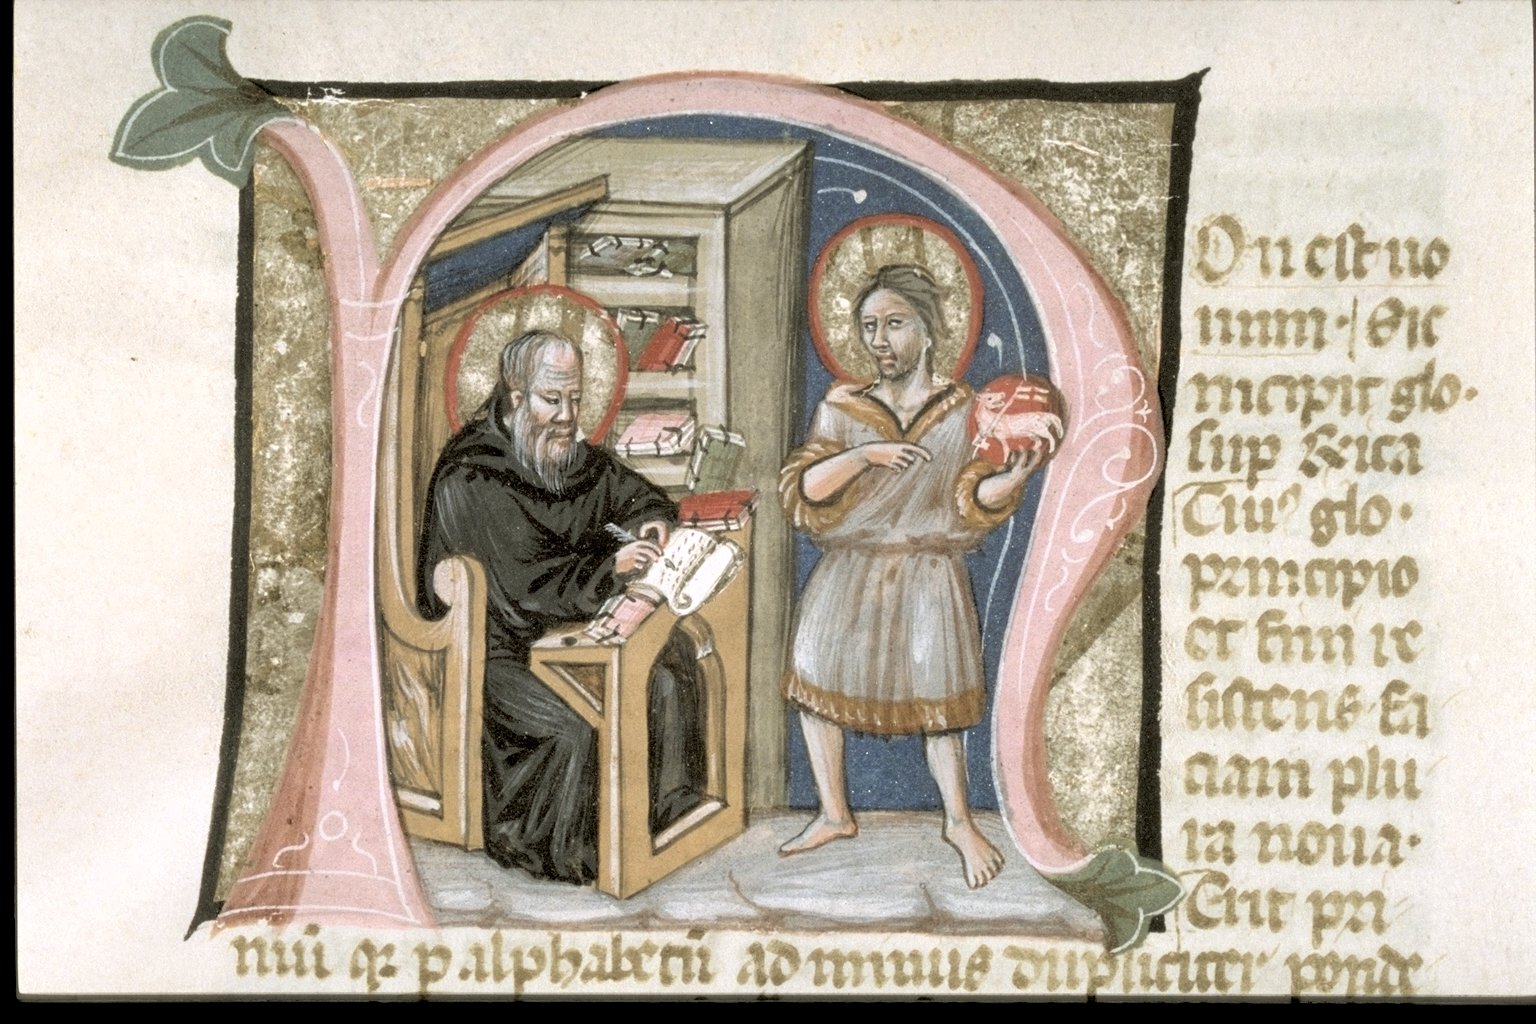 On est uo
uum. Sic
incipit glo.
sup
glo.
principio
et fini re
sistens. Fa
ciam plu
ra noua.
Erit pri
mū qr p alphabetū ad minus dupliciter